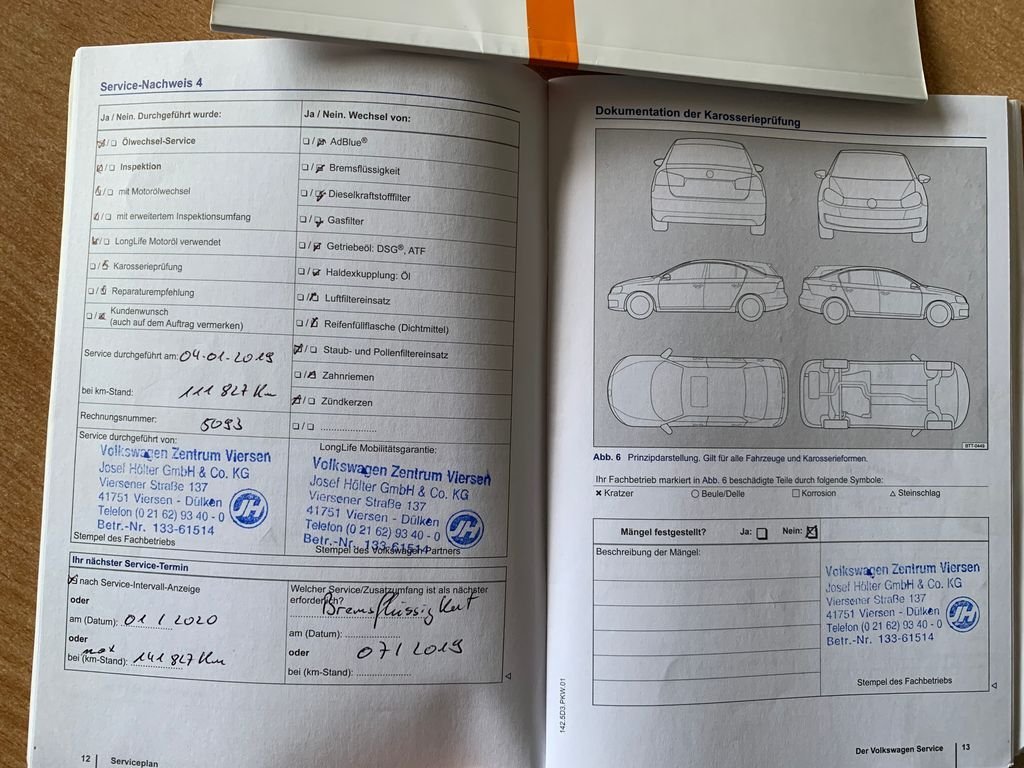 Service-Nachweis 4
Ja / Nein. Durchgeführt wurde:
Ölwechsel-Service
Inspektion
mit Motorölwechsel
mit erweitertem Inspektionsumfang
LongLife Motoröl verwendet
Karosserieprüfung
Reparaturempfehlung
Kundenwunsch
(auch auf dem Auftrag vermerken)
Service durchgeführt am: 04.01.2019
bei km-Stand: 111 827 Km
Rechnungsnummer: 5093
Ja / Nein. Wechsel von:
AdBlue®
Bremsflüssigkeit
Dieselkraftstofffilter
Gasfilter
Getriebeöl: DSG®, ATF
Haldexkupplung: Öl
Luftfiltereinsatz
Reifenfüllflasche (Dichtmittel)
Staub- und Pollenfiltereinsatz
Zahnriemen
Zündkerzen
Service durchgeführt von:
Volkswagen Zentrum Viersen
Josef Hölter GmbH & Co. KG
Viersener Straße 137
41751 Viersen - Dülken
Telefon (0 21 62) 93 40 - 0
Betr.-Nr. 133-61514
JH
Stempel des Fachbetriebs
LongLife Mobilitätsgarantie:
Volkswagen Zentrum Viersen
Josef Hölter GmbH & Co. KG
Viersener Straße 137
41751 Viersen - Dülken
Telefon (0 21 62) 93 40 - 0
Betr.-Nr. 133-61514
JH
Stempel des Volkswagen Partners
Ihr nächster Service-Termin
nach Service-Intervall-Anzeige
oder
am (Datum): 01 / 2020
oder
max
bei (km-Stand): 141 827 Km
Welcher Service/Zusatzumfang ist als nächster
erforderlich?
Bremsflüssigkeit
am (Datum):
oder 07 / 2019
bei (km-Stand):
12 Serviceplan
Dokumentation der Karosserieprüfung
BTT-0449
Abb. 6 Prinzipdarstellung. Gilt für alle Fahrzeuge und Karosserieformen.
Ihr Fachbetrieb markiert in Abb. 6 beschädigte Teile durch folgende Symbole:
Kratzer Beule/Delle Korrosion Steinschlag
Mängel festgestellt? Ja: Nein:
Beschreibung der Mängel:
Volkswagen Zentrum Viersen
Josef Hölter GmbH & Co. KG
Viersener Straße 137
41751 Viersen - Dülken
Telefon (0 21 62) 93 40 - 0
Betr.-Nr. 133-61514
JH
Stempel des Fachbetriebs
142.5D3.PKW.01
Der Volkswagen Service 13